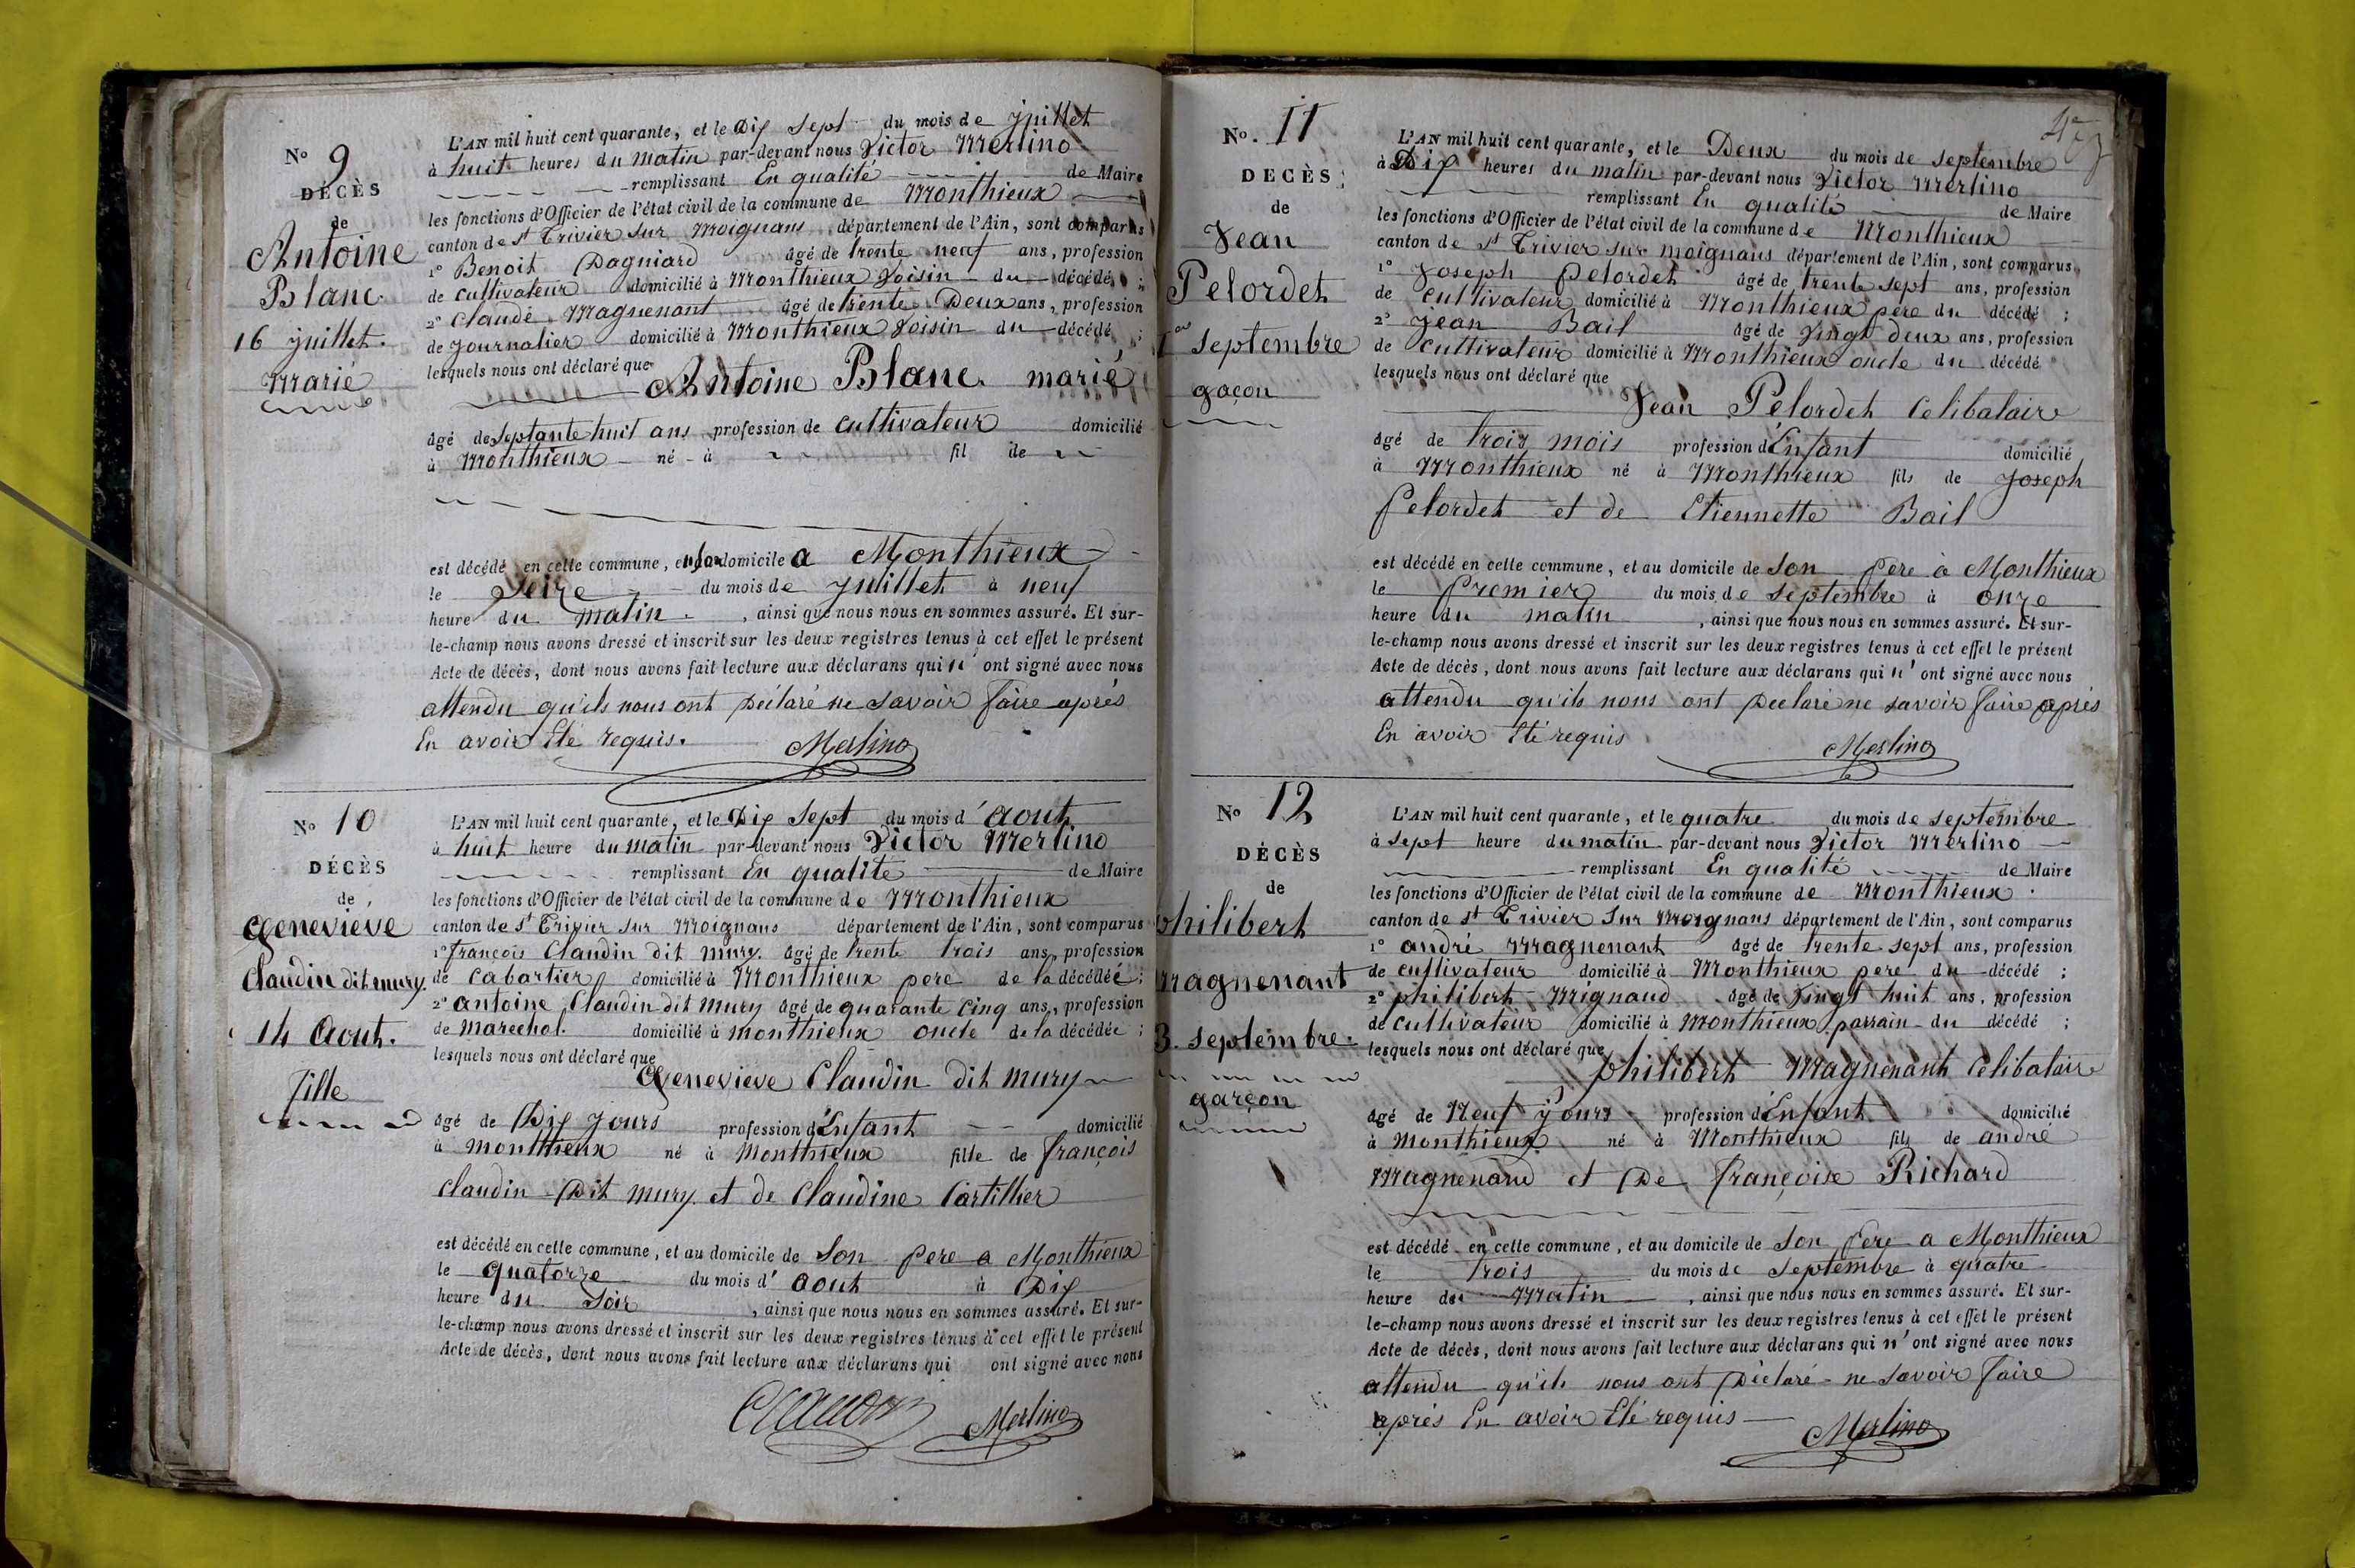 N.º 9
DÉCÈS
de
Antoine
Blanc.
16 juillet.
marié
L'AN mil huit cent quarante, et le Dix Sept du mois de juillet
à huit heures du matin par-devant nous Victor Merlino
remplissant En qualité de Maire
les fonctions d'Officier de l'état civil de la commune de Monthieux
canton de St Trivier sur Moignans département de l'Ain, sont comparus
1º Benoit Dagniard âgé de trente neuf ans, profession
de cultivateur domicilié à Monthieux voisin du décédé ;
2º Claude Magnenant âgé de trente Deux ans, profession
de journalier domicilié à Monthieux voisin du décédé ;
lesquels nous ont déclaré que
Antoine Blanc. marié
âgé de Septante huit ans profession de cultivateur domicilié
à Monthieux né à fil de
est décédé en cette commune, en son domicile a Monthieux
le Seize du mois de juillet à neuf
heure du matin. , ainsi que nous nous en sommes assuré. Et sur-
le-champ nous avons dressé et inscrit sur les deux registres tenus à cet effet le présent
Acte de décès, dont nous avons fait lecture aux déclarans qui n' ont signé avec nous
attendu qu'ils nous ont Déclaré ne savoir faire après
En avoir Eté requis. Merlino
N.º 10
DÉCÈS
de
Genevieve
Claudin dit mury.
14 Aout.
fille
L'AN mil huit cent quarante, et le Dix Sept du mois d' Aout
à huit heure du matin par-devant nous Victor Merlino
remplissant En qualité de Maire
les fonctions d'Officier de l'état civil de la commune de Monthieux
canton de St Trivier sur Moignans département de l'Ain, sont comparus
1º françois Claudin dit mury. âgé de trente trois ans, profession
de Cabartier domicilié à Monthieux pere de la décédée ;
2º antoine Claudin dit mury âgé de quarante Cinq ans, profession
de marechal. domicilié à monthieux oncle de la décédée ;
lesquels nous ont déclaré que
Genevieve Claudin dit mury
âgé de Dix jours profession d'Enfant domicilié
à monthieux né à Monthieux fille de françois
Claudin Dit mury et de Claudine Cartillier
est décédé en cette commune, et au domicile de Son Pere a Monthieux
le quatorze du mois d' aout à Dix
heure du Soir , ainsi que nous nous en sommes assuré. Et sur-
le-champ nous avons dressé et inscrit sur les deux registres tenus à cet effet le présent
Acte de décès, dont nous avons fait lecture aux déclarans qui ont signé avec nous
Merlino
N.º 11
DÉCÈS
de
Jean
Pelordet
1er septembre
gaçon
L'AN mil huit cent quarante, et le Deux du mois de septembre
à Dix heures du matin par-devant nous Victor Merlino
remplissant En qualité de Maire
les fonctions d'Officier de l'état civil de la commune de Monthieux
canton de St Trivier sur moignans département de l'Ain, sont comparus
1º Joseph Pelordet âgé de trente sept ans, profession
de cultivateur domicilié à Monthieux pere du décédé ;
2º Jean Bail âgé de vingt deux ans, profession
de cultivateur domicilié à Monthieux oncle du décédé
lesquels nous ont déclaré que
Jean Pelordet Celibataire
âgé de trois mois profession d'Enfant domicilié
à Monthieux né à Monthieux fils de Joseph
Pelordet et de Etiennette Bail
est décédé en cette commune, et au domicile de Son Pere à Monthieux
le Premier du mois de septembre à onze
heure du matin , ainsi que nous nous en sommes assuré. Et sur-
le-champ nous avons dressé et inscrit sur les deux registres tenus à cet effet le présent
Acte de décès, dont nous avons fait lecture aux déclarans qui n' ont signé avec nous
attendu qu'ils nous ont Declaré ne savoir faire après
En avoir Eté requis Merlino
N.º 12
DÉCÈS
de
philibert
magnenant
3. septembre.
garçon
L'AN mil huit cent quarante, et le quatre du mois de septembre
à sept heure du matin par-devant nous Victor Merlino
remplissant En qualité de Maire
les fonctions d'Officier de l'état civil de la commune de Monthieux
canton de St Trivier sur Moignans département de l'Ain, sont comparus
1º andré Magnenant âgé de trente sept ans, profession
de cultivateur domicilié à Monthieux pere du décédé ;
2º philibert Mignaud âgé de vingt huit ans, profession
de cultivateur domicilié à Monthieux parrain du décédé ;
lesquels nous ont déclaré que
philibert Magnenant Celibataire
âgé de Neuf jours profession d'Enfant domicilié
à Monthieux né à Monthieux fils de andré
Magnenand et De françoise Richard
est décédé en cette commune, et au domicile de Son Pere a Monthieux
le trois du mois de Septembre à quatre
heure du Matin , ainsi que nous nous en sommes assuré. Et sur-
le-champ nous avons dressé et inscrit sur les deux registres tenus à cet effet le présent
Acte de décès, dont nous avons fait lecture aux déclarans qui n' ont signé avec nous
attendu qu'ils nous ont Déclaré ne savoir faire
après En avoir Eté requis Merlino